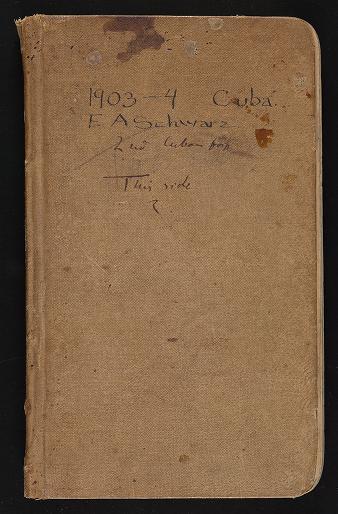 1903-4 Cuba.
E A Schwarz
2nd Cuban trip
This side
2